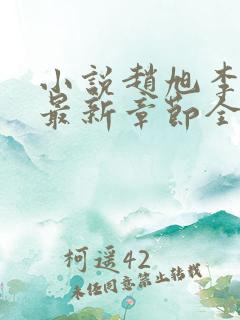 小說趙旭李
最新章節全
柯遥42
未经同意禁止转载